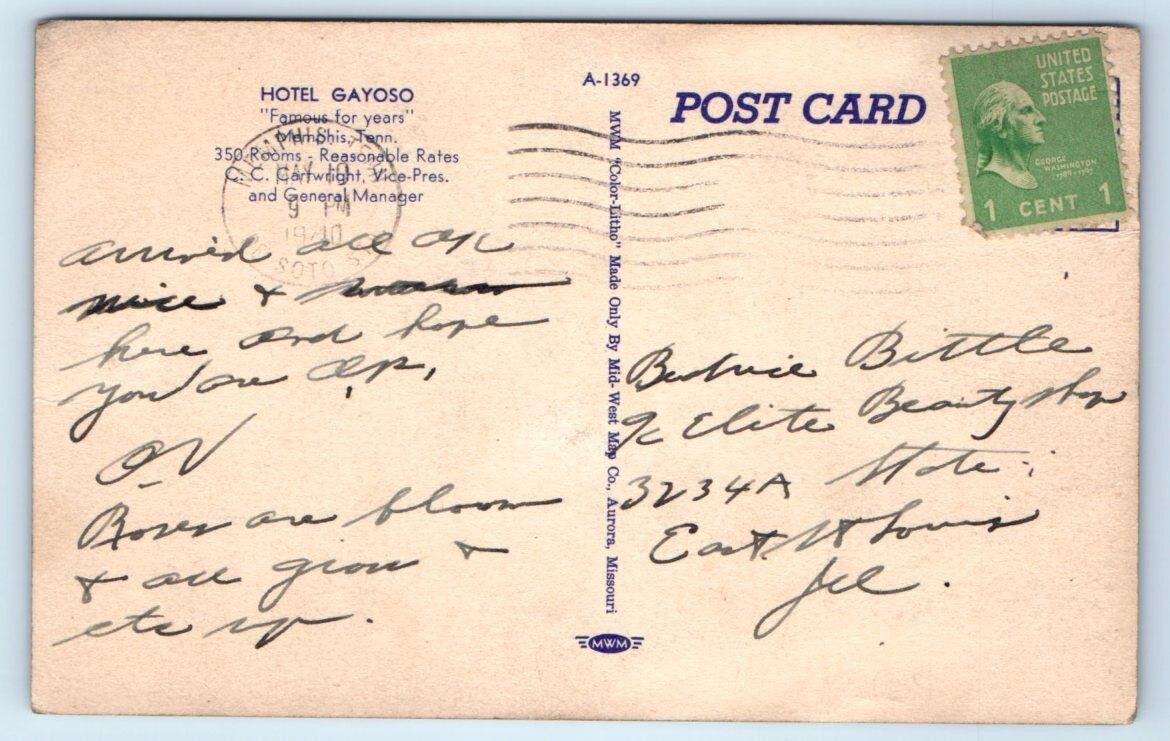 HOTEL GAYOSO
"Famous for years"
Memphis, Tenn.
350 Rooms - Reasonable Rates
C. C. Cartwright, Vice-Pres.
and General Manager
MEMPHIS
MAY 10
9 PM
1940
SOTO S
A-1369
POST CARD
MWM "Color-Litho" Made Only By Mid-West Map Co., Aurora, Missouri
MWM
UNITED
STATES
POSTAGE
GEORGE
WASHINGTON
1789-1797
1 CENT 1
arrived all OK
nice &
here and hope
you are OK,
OV
Roses are bloom
& all grow &
etc up.
Bittle
% Elite Beauty Shop
3234A State
East St Louis
Ill.